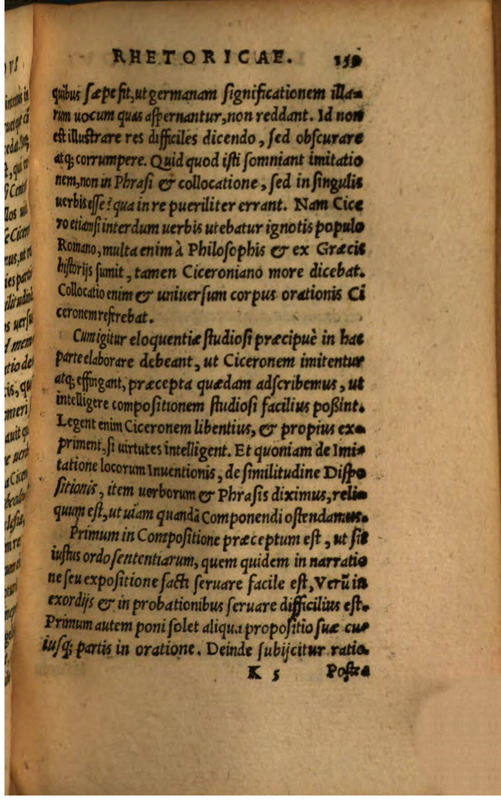 RHETORICAE. 159
quibus sæpe fit, ut germanam significationem illa-
rum uocum quas aspernantur, non reddant. Id non
est illustrare res difficiles dicendo, sed obscurare
atq; corrumpere. Quid quod isti somniant imitatio
nem, non in Phrasi & collocatione, sed in singulis
uerbis esse? qua in re pueriliter errant. Nam Cice
ro etiamsi interdum uerbis utebatur ignotis populo
Romano, multa enim à Philosophis & ex Græcis
historijs sumit, tamen Ciceroniano more dicebat.
Collocatio enim & uniuersum corpus orationis Ci
ceronem referebat.
Cum igitur eloquentiæ studiosi præcipuè in hac
parte elaborare debeant, ut Ciceronem imitentur
atq; effingant, præcepta quædam adscribemus, ut
intelligere compositionem studiosi facilius poßint.
Legent enim Ciceronem libentius, & propius ex-
priment, si uirtutes intelligent. Et quoniam de Imi-
tatione locorum Inuentionis, de similitudine Dispo
sitionis, item uerborum & Phrasis diximus, reli-
quum est, ut uiam quandã Componendi ostendamus.
Primum in Compositione præceptum est, ut sit
iustus ordo sententiarum, quem quidem in narratio
ne seu expositione facti seruare facile est, Verũ in
exordijs & in probationibus seruare difficilius est.
Primum autem poni solet aliqua propositio suæ cu-
iusq; partis in oratione. Deinde subijcitur ratio.
K 5 Postea